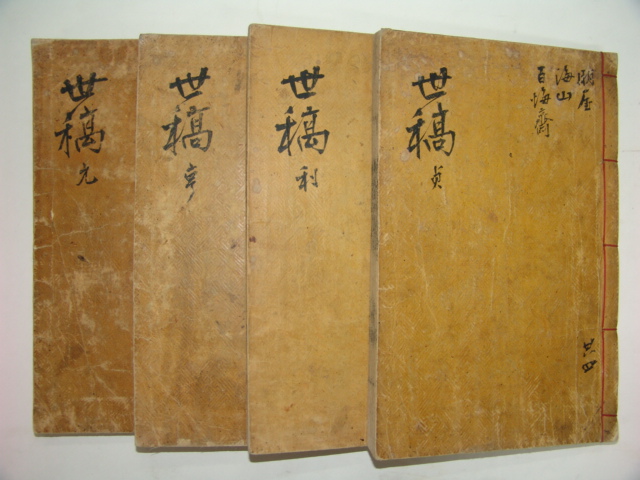 世稿 元
世稿 亨
世稿 利
世稿 貞
屋
海山
百悔齋
共四